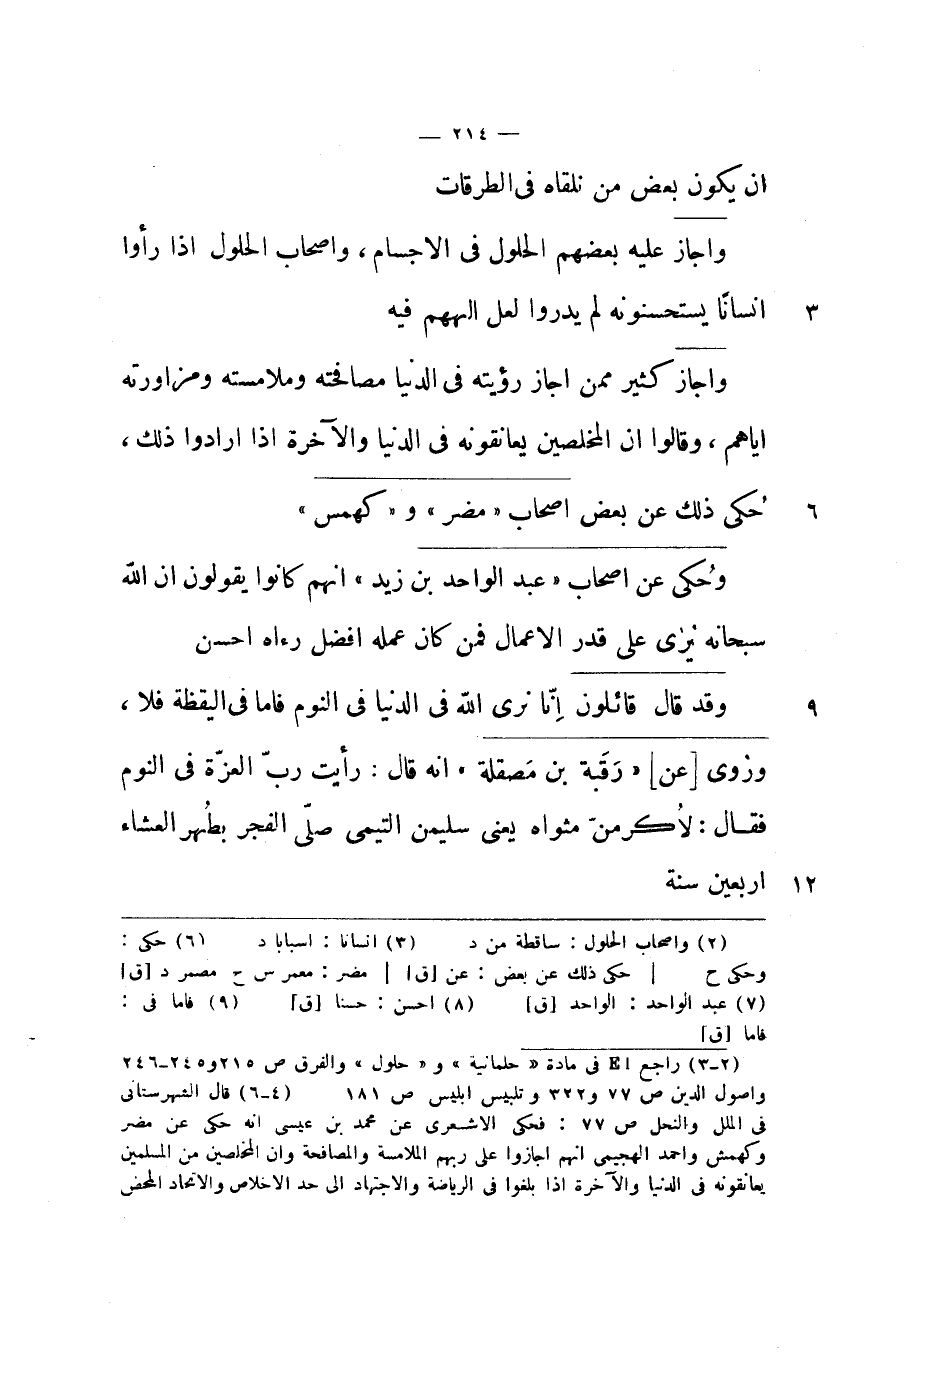 — ٢١٤ —
ان يكون بعض من نلقاه فى الطرقات
واجاز عليه بعضهم الحلول فى الاجسام ، واصحاب الحلول اذا رأوا
٣ انسانًا يستحسنونه لم يدروا لعل الههم فيه
واجاز كثير ممن اجاز رؤيته فى الدنيا مصافحته وملامسته ومزاورته
اياهم ، وقالوا ان المخلصين يعانقونه فى الدنيا والآخرة اذا ارادوا ذلك ،
٦ حُكى ذلك عن بعض اصحاب « مضر » و « كهمس »
وحُكى عن اصحاب « عبد الواحد بن زيد » انهم كانوا يقولون ان الله
سبحانه يُرٰى على قدر الاعمال فمن كان عمله افضل رءاه احسن
٩ وقد قال قائلون إنّا نرى الله فى الدنيا فى النوم فاما فى اليقظة فلا ،
ورُوى [عن] « رَقَبة بن مَصقلة » انه قال : رأيت ربّ العزّة فى النوم
فقال : لأكرمنّ مثواه يعنى سليمن التيمى صلّى الفجر بطُهر العشاء
١٢ اربعين سنة
(٢) واصحاب الحلول : ساقطة من د (٣) انسانا : اسبابا د (٦) حكى :
وحكى ح | حكى ذلك عن بعض : عن [ق] | مضر : معمر س ح مصمر د [ق]
(٧) عبد الواحد : الواحد [ق] (٨) احسن : حسنا [ق] (٩) فاما فى :
فاما [ق]
(٢-٣) راجع EI فى مادة « حلمانية » و « حلول » والفرق ص ٢١٥ و٢٤٥-٢٤٦
واصول الدين ص ٧٧ و٣٢٢ و تلبيس ابليس ص ١٨١ (٤-٦) قال الشهرستانى
فى الملل والنحل ص ٧٧ : فحكى الاشعرى عن محمد بن عيسى انه حكى عن مضر
وكهمش واحمد الهجيمى انهم اجازوا على ربهم الملامسة والمصافحة وان المخلصين من المسلمين
يعانقونه فى الدنيا والآخرة اذا بلغوا فى الرياضة والاجتهاد الى حد الاخلاص والاتحاد المحض